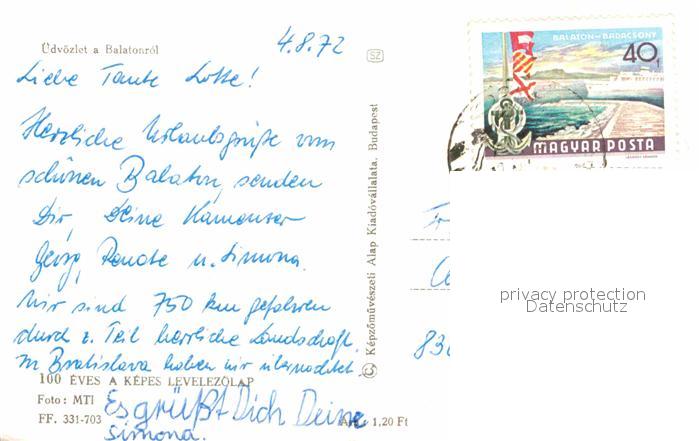 Üdvözlet a Balatonról
4.8.72
SZ
BALATON-BADACSONY
40f
MAGYAR POSTA
Liebe Tante Lotte!
Herzliche Urlaubsgrüße vom
schönen Balaton, senden
Dir, Deine Kamenzer
Georg, Renate u. Simona.
Wir sind 750 km gefahren
durch z. Teil herrliche Landschaft.
In Bratislava haben wir übernachtet.
100 ÉVES A KÉPES LEVELEZŐLAP
Foto: MTI
FF. 331-703
Es grüßt Dich Deine
Simona.
1,20 Ft
Képzőművészeti Alap Kiadóvállalata, Budapest
privacy protection
Datenschutz